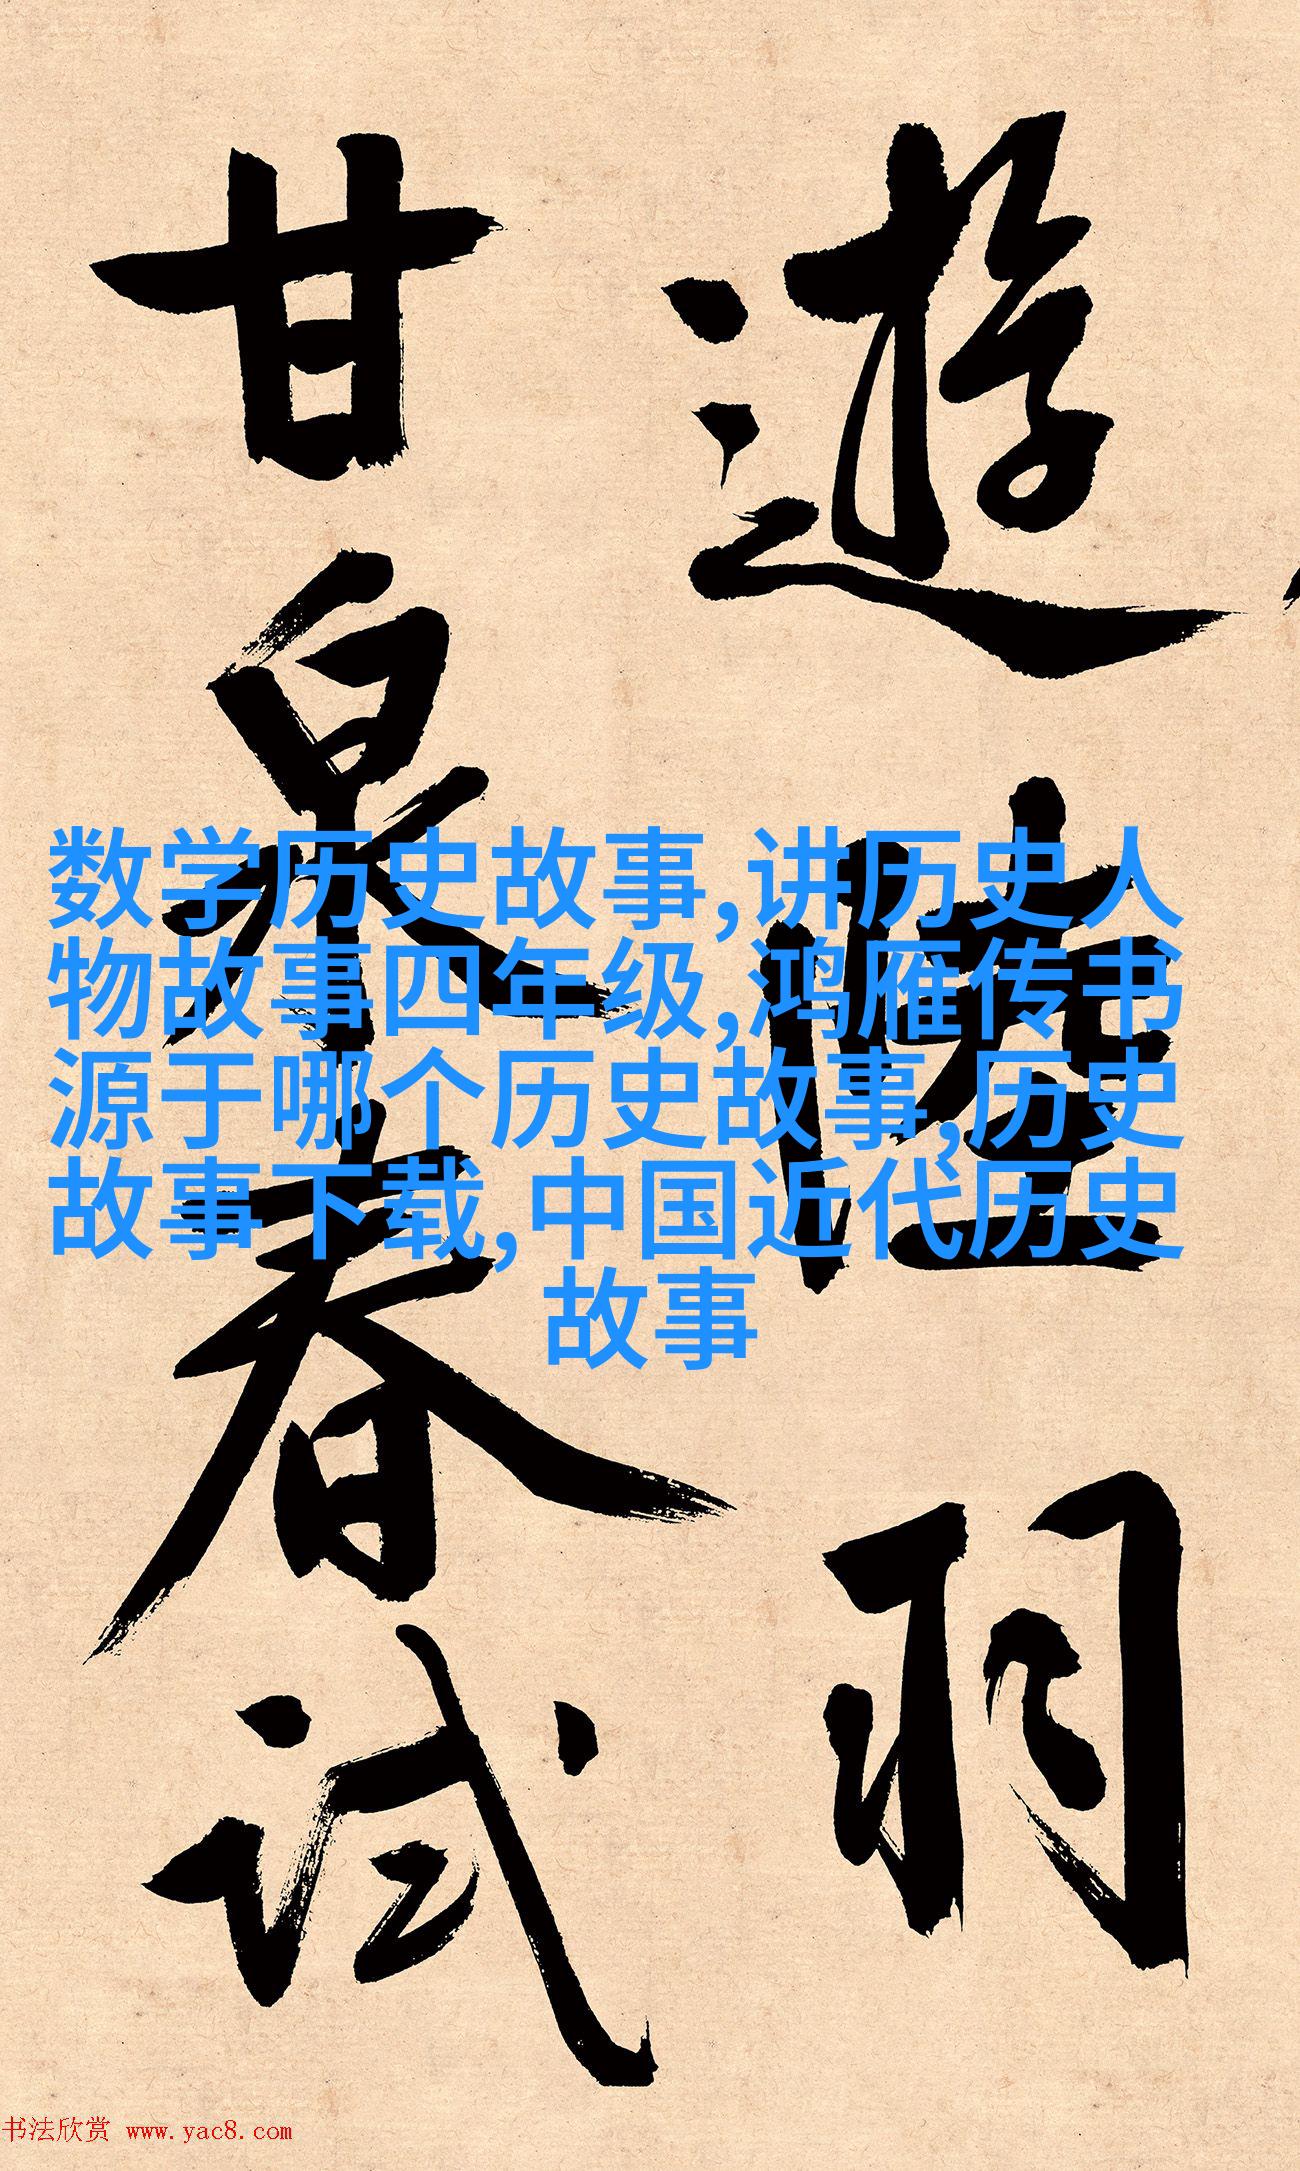 遊陸羽
甘泉春試
数学历史故事,讲历史人
物故事四年级,鸿雁传书
源于哪个历史故事,历史
故事下载,中国近代历史
故事
书法欣赏 www.yac8.com